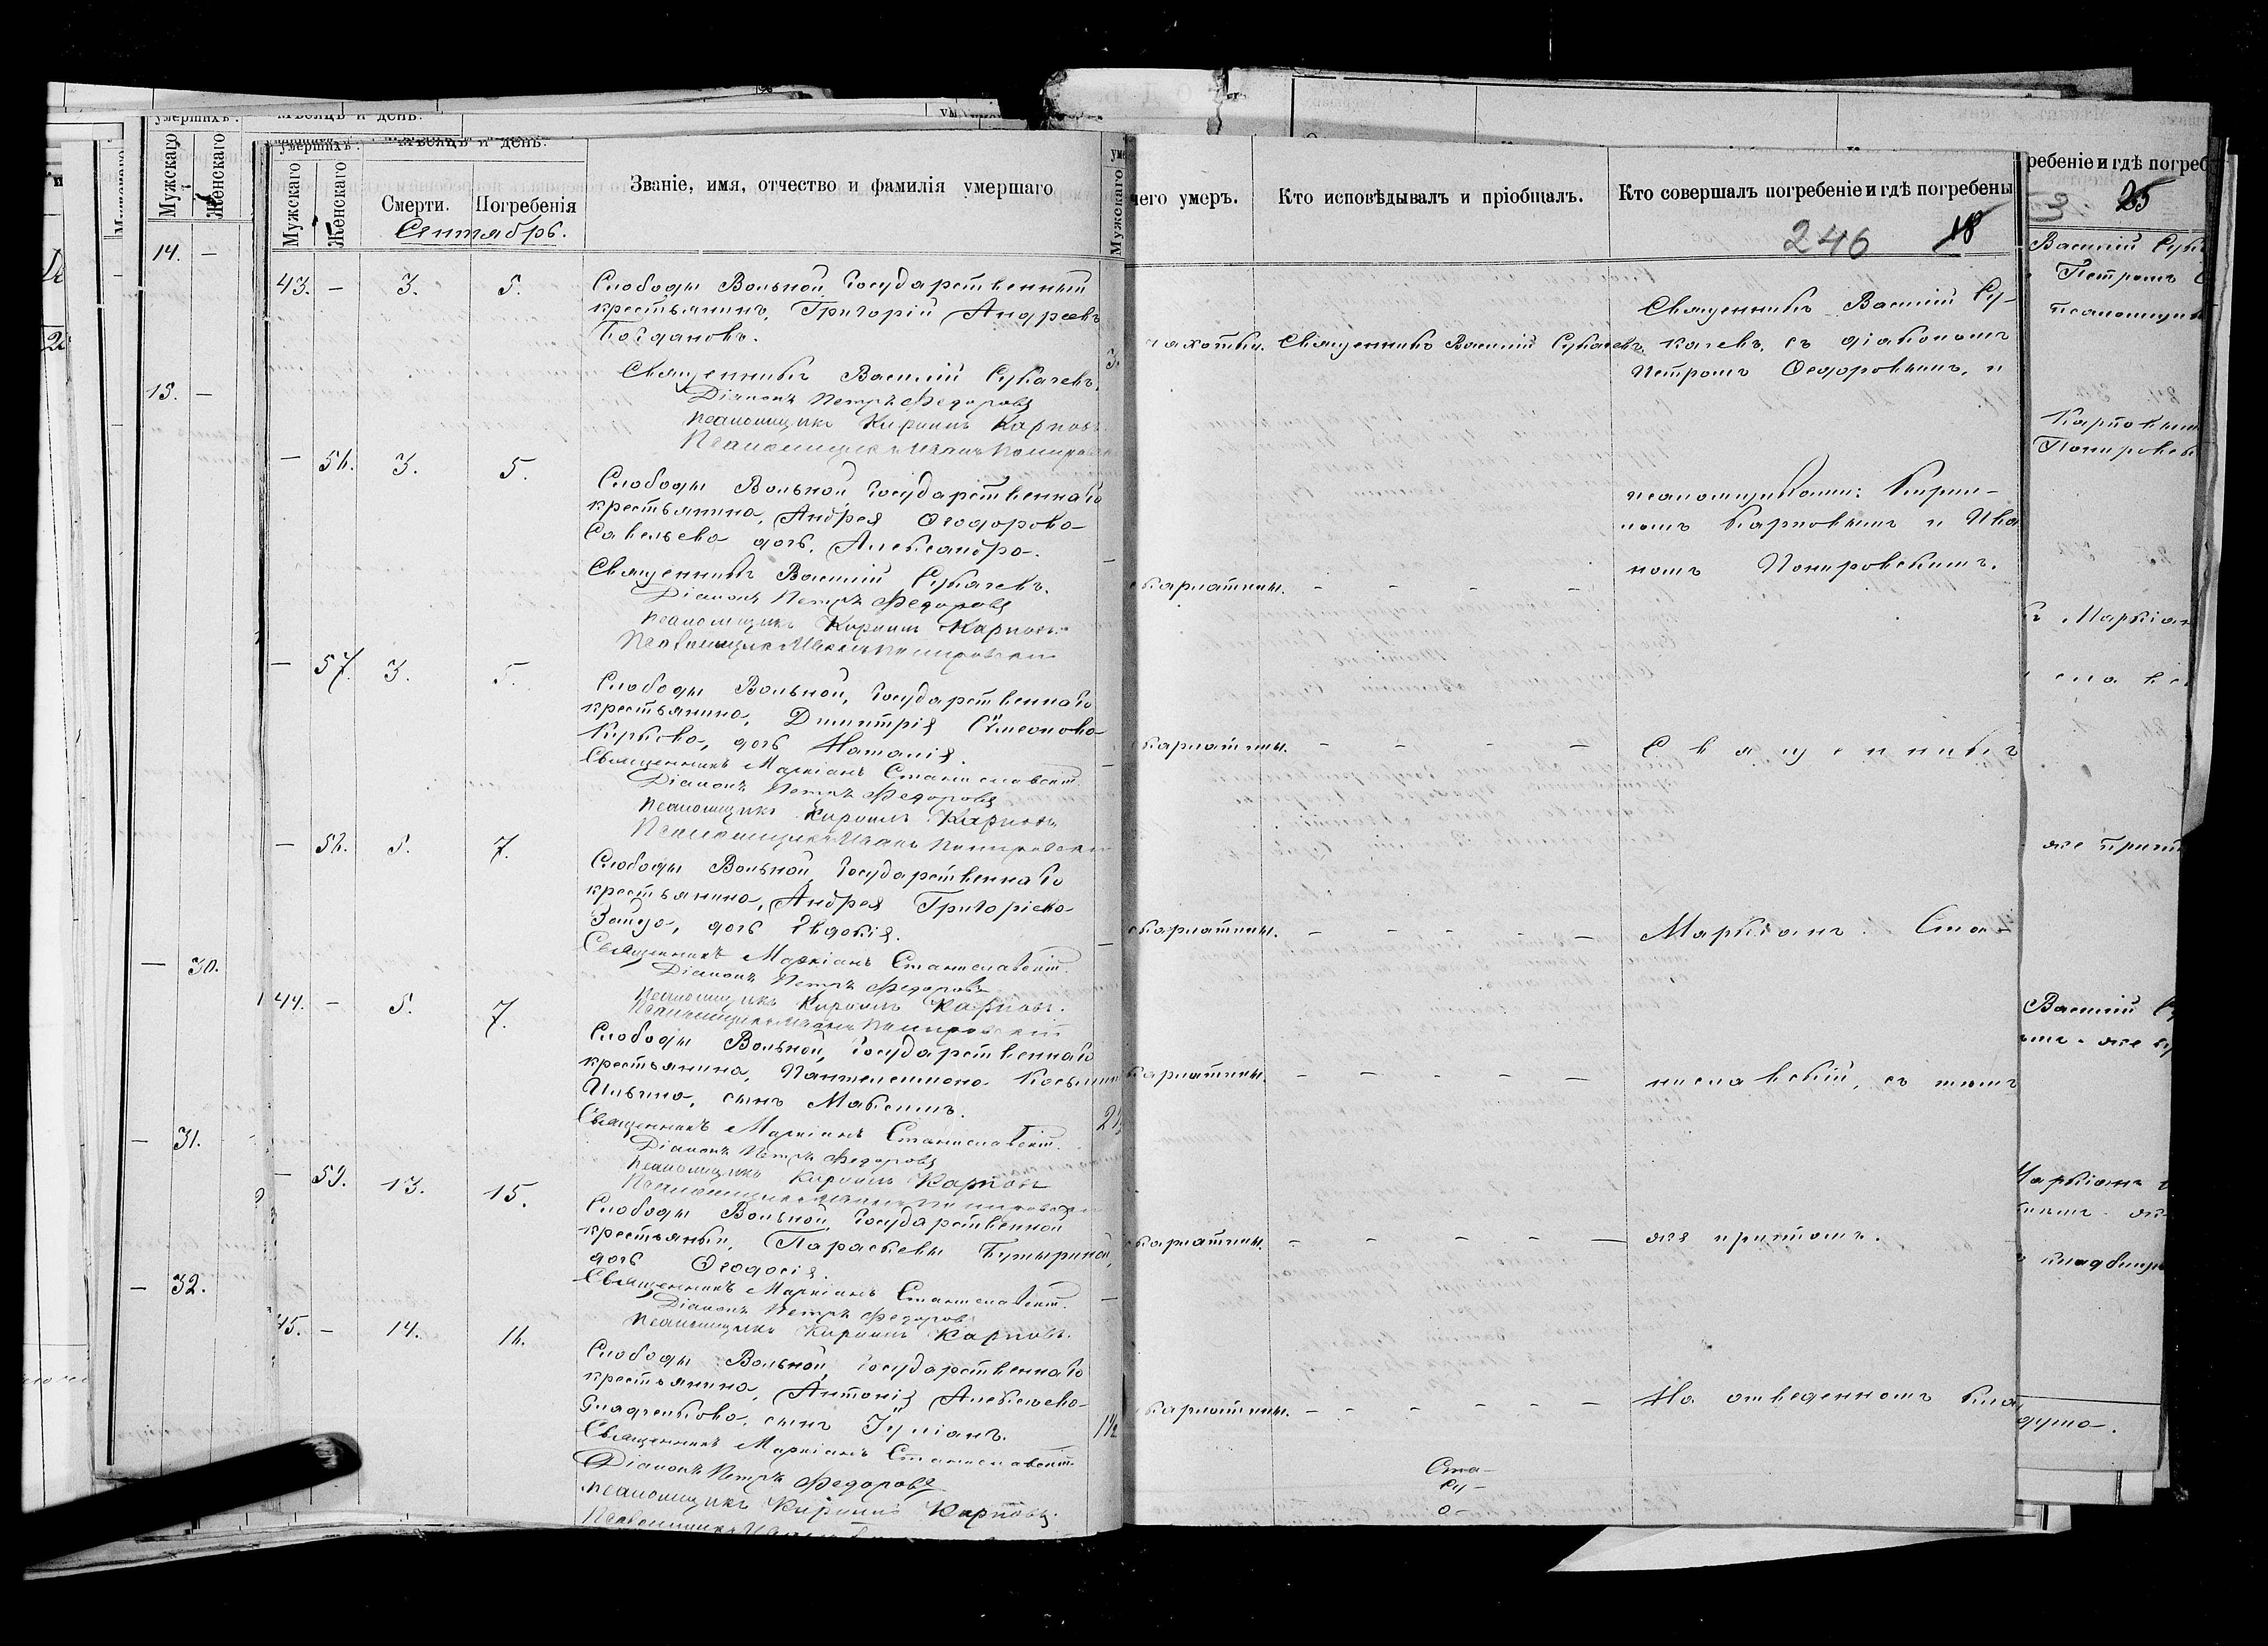 умершихъ.
Мѣсяцъ и день.
Мужскаго
Женскаго
Смерти.
Погребенія
Званіе, имя, отчество и фамилія умершаго
Сентябрь.
43. – 3. 5.
Слободы Вольной, Государственный
крестьянинъ, Григорій Андреевъ
Богдановъ.
Священникъ Василій Сукачевъ.
Діаконъ Петръ Федоровъ
Псаломщикъ Кириллъ Карповъ
Псаломщикъ Иванъ
– 56. 3. 5.
Слободы Вольной, Государственнаго
крестьянина, Андрея Ѳеодорова
Савельева дочь, Александра.
Священникъ Василій Сукачевъ.
Діаконъ Петръ Федоровъ
Псаломщикъ Кириллъ Карповъ
Псаломщикъ Иванъ
– 57. 3. 5.
Слободы Вольной, Государственнаго
крестьянина, Димитрія Сѵмеонова
дочь Наталія.
Священникъ Маркіанъ Станиславскій.
Діаконъ Петръ Федоровъ
Псаломщикъ Кириллъ Карповъ
Псаломщикъ Иванъ
– 58. 5. 7.
Слободы Вольной, Государственнаго
крестьянина, Андрея Григоріева
Зайца, дочь Евдокія.
Священникъ Маркіанъ Станиславскій.
Діаконъ Петръ Федоровъ
Псаломщикъ Кириллъ Карповъ.
Псаломщикъ Иванъ
44. – 5. 7.
Слободы Вольной, Государственнаго
крестьянина, Пантелеимона Косьмина
Ильина, сынъ Максимъ.
Священникъ Маркіанъ Станиславскій.
Діаконъ Петръ Федоровъ
Псаломщикъ Кириллъ Карповъ
Псаломщикъ Иванъ
– 59. 13. 15.
Слободы Вольной, Государственной
крестьянки, Параскевы Бутыриной,
дочь Ѳеодосія.
Священникъ Маркіанъ Станиславскій.
Діаконъ Петръ Федоровъ
Псаломщикъ Кириллъ Карповъ.
45. – 14. 16.
Слободы Вольной, Государственнаго
крестьянина, Антонія Алексѣева
Гладченкова, сынъ Іуліанъ.
Священникъ Маркіанъ Станиславскій
Діаконъ Петръ Федоровъ
Псаломщикъ Кириллъ Карповъ.
чего умеръ.
Кто исповѣдывалъ и пріобщалъ.
Кто совершалъ погребеніе и гдѣ погребены
246 18
чахотки. Священникъ Василій Сукачевъ.
Священникъ Василій Су-
качевъ, съ діакономъ
Петромъ Ѳеодоровымъ, и
псаломщиками: Кирил-
ломъ Карповымъ и Ива
номъ
скарлатины. – – – –
скарлатины. – – – –
Священникъ
скарлатины. – – – – –
Маркіанъ Ста-
скарлатины. – – – – –
ниславскій, съ тѣмъ
скарлатины. – – – – –
же причтомъ.
скарлатины. – – – – – –
На отведенномъ кла
Ста-
Су-
о-
14. –
15. –
– 30.
– 31.
– 32.
ребеніе и гдѣ погреб
25
Василій Сук
Петромъ
псаломщик
Карповым
Маркіан
же причт
Василій С
Маркіанъ
кладбищ